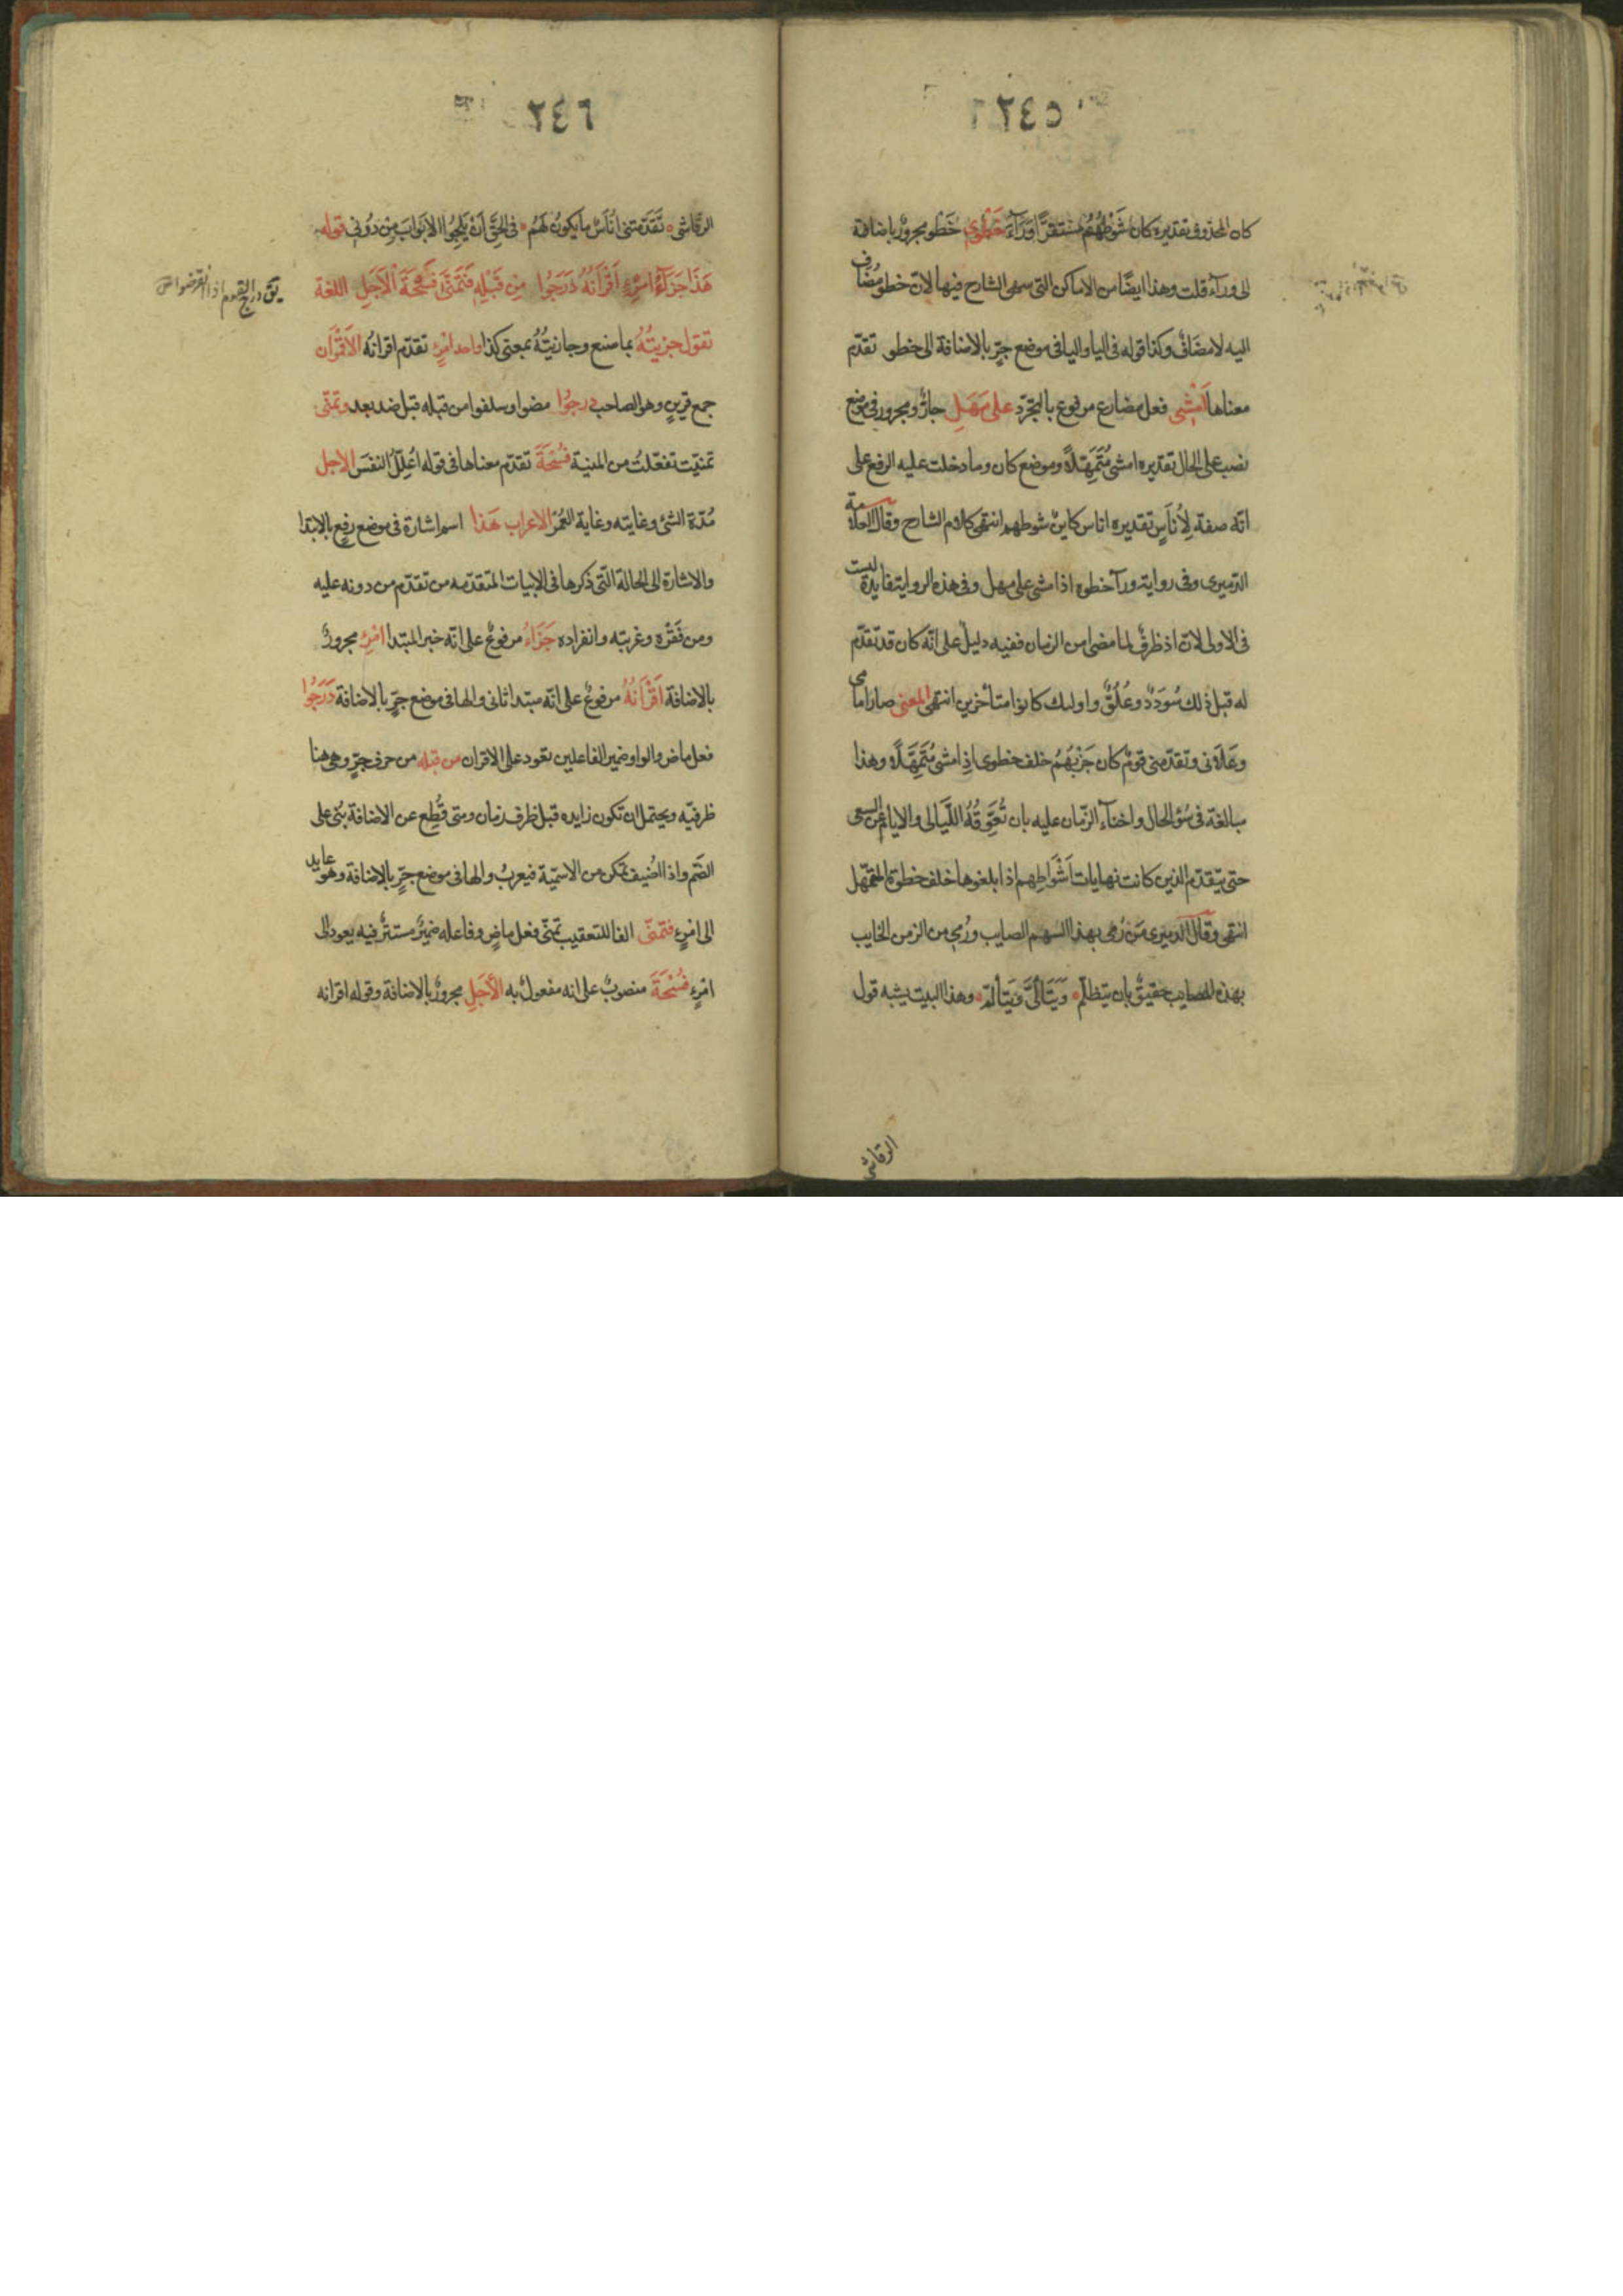 ٢٤٥
كان المحذوف تقديره كان شَوْطُهُمْ مستقرًّا وَرَآءَ خَطْوِي خَطْوِ مجرورٌ باضافة
الى ورآء قلت وهذا ايضًا من الاماكن التى سهى الشارح فيها لانّ خطو مُضاف
اليه لا مضَافٌ وكذا قوله فى اليا واليا فى موضع جرٍّ بالاضافة الى خطو تقدّم
معناها اَمْشِى فعل مضارع مرفوع بالتجرّد على مَهَلِ جارٌّ ومجرور فى موضع
نصب على الحال تقديره امشى مُتَمَهِّلاً وموضع كان وما دخلت عليه الرفع على
انّه صفة لِأُنَاسٍ تقديره اناس كاينٌ شوطهم انتهى كلام الشارح وقال العلامة
الدّميرى وفى رواية ورآ خطوه اذا مشى على مهل وفى هذه الرواية فايدة ليست
فى الاولى لانّ اذ ظرفٌ لما مضى من الزمان ففيه دليلٌ على انّه كان قد تقدّم
له قبل ذلك سُوَدَدٌ وعُلُوٌّ واوليك كانوا متأخرين انتهى المعنى صار امامى
وعَلاَنى وتقدّمنى قومٌ كان جَرْيُهُمْ خلف خطوى اذِا مشى مُتَمَهِّلاً وهذا
مبالغة فى سُؤ الحال واخنآءِ الزّمان عليه بان تُعَوِّقُهُ اللَّيَالى والايام عن السعى
حتى يتقدّم الذين كانت نهايات اَشْوَاطِهِم اذا بلغوها خلف خطوة المتمهّل
انتهى وقال الدميرى مَنْ رُمى بهذا السهم الصايب ورُمى من الزمن الخايب
بهذه المصايب حقيقٌ بان يتظلّم وَيَتَأَلَّى وَيَتَألَّمْ وهذا البيت يشبه قول
الرقاشى
٢٤٦
الرقاشى تَقَدّمتنى اُنَاسٌ ما يكونُ لَهُمْ فى الحَقِّ اَنْ يَلِجُوا الابَوابَ مِنْ دُونى قوله
هَذَا جَزَآءُ امْرِءٍ اَقْرَانُهُ دَرَجُوا مِنْ قَبْلِهِ فَتَمَنَّى فُسْحَةَ الْأَجَلِ اللغة
يقال درج القوم اذا انقرضوا
تقول جزيتُهُ بما صنع وجازيتُهُ بمعنى كذا واحد امْرِءٍ تقدّم اقرانُه الاَقْرَان
جمع قرينٍ وهو الصاحب درجُوا مضوا وسلفوا من قبله قبل ضد بعد وتمنّى
تمنيّت تفعّلتُ من المنية فُسْحَةَ تقدّم معناها فى قوله اُعلّلُ النفسَ الاجل
مُدّة الشئ وغايته وغاية العُمُرِ الاعراب هَذَا اسم اشارة فى موضع رفعٍ بالابتدا
والاشارة الى الحالة التّى ذكرها فى الابيات المتقدّمه من تقدّم من دونه عليه
ومن فَقْرِه وغربته وانفراده جَزَاءُ مرفوعٌ على انّه خبر المبتدا امْرِءٍ مجرورٌ
بالاضافة اَقْرَانُهُ مرفوعٌ على انّه مبتدا ثانى والها فى موضع جرٍّ بالاضافة دَرَجُوا
فعل ماض والواو ضمير الفاعلين تعود على الاقران من قبله من حرف جرٍّ وهى هنا
ظرفيّه ويحتمل ان تكون زايده قبل ظرف زمان ومتى قُطِع عن الاضافة بُنى على
الضّم واذا اُضيف تمكن من الاسميّة فيعربُ والها فى موضع جرٍّ بالاضافة وهو عايد
الى امْرِءٍ فتمنّى الفا للتعقيب تمنّى فعل ماضٍ وفاعله ضميرٌ مستترٌ فيه يعود الى
امْرِءٍ فُسْحَةَ منصوبٌ على انه مفعولٌ به الأَجَلِ مجرورٌ بالاضافة وقوله اقرانه